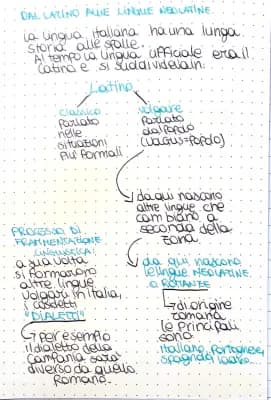 DAL LATINO ALLE LINGUE NEOLATINE
La lingua italiana ha una lunga
storia alle spalle.
Al tempo la lingua ufficiale era il
latino e si suddivideva in:
Latino
classico
parlato
nelle
situazioni
più formali
volgare
parlato
dal popolo
(vulgus=popolo)
da qui nascono
altre lingue che
cambiano a
seconda della
zona.
PROCESSO DI
FRAMMENTAZIONE
LINGUISTICA:
a sua volta
si formarono
altre lingue
volgari in Italia,
cosidetti
"DIALETTI"
per esempio
il dialetto della
Campania sarà
diverso da quello
Romano.
da qui nascono
le lingue NEOLATINE
o ROMANZE
di origine
romana
le principali
sono:
italiano, portoghese,
spagnolo,